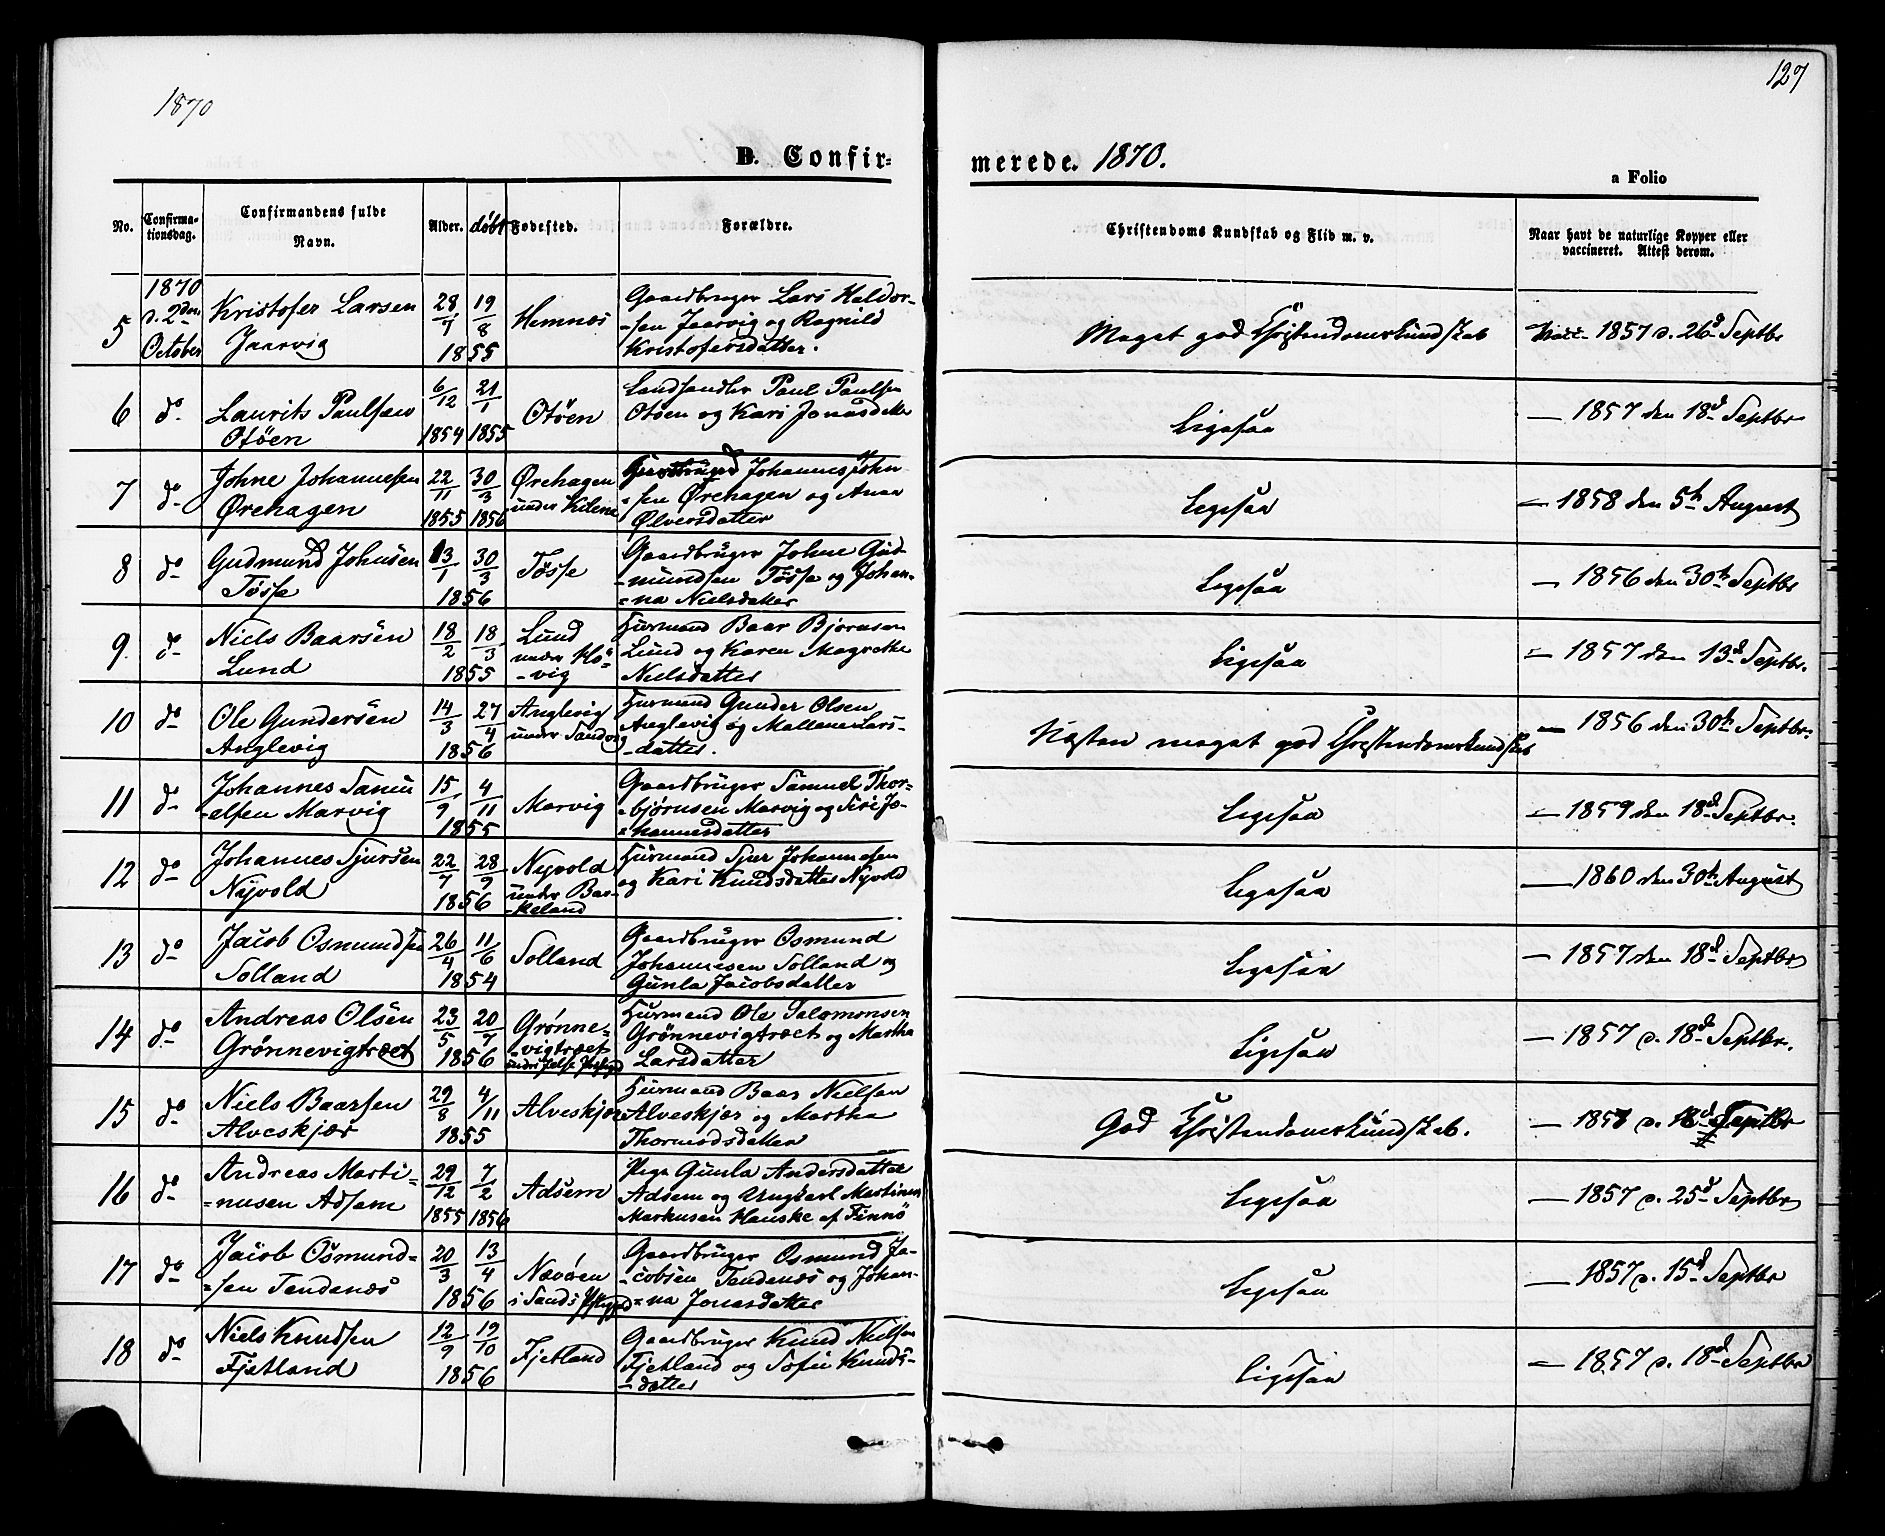 1870
127
B. Confir-
merede. 1870.
a Folio
No.
Confirma-
tionsdag.
Confirmandens fulde
Navn.
Alder.
døbt
Fødested.
Forældre.
Christendoms Kundskab og Flid m. v.
Naar havt de naturlige Kopper eller
vaccineret. Attest derom.
5
1870
d. 2den
October
Kristofer Larsen
Jaarvig
28/7 19/8
1855
Hemnæs
Gaardbruger Lars Haldor-
-sen Jaarvig og Ragnild
Kristofersdatter.
Meget god Christendomskundskab
1857 d. 26d Septbr
6
do
Laurits Paulsen
Otöen
6/12 21/1
1854 1855
Otöen
Landhandler Paul Paulsen
Otöen og Kari Jonasdatter
Ligesaa
— 1857 den 18d Septbr
7
do
Johne Johannesen
Ørehagen
22/11 30/3
1855 1856
Ørehagen
under Kilene
Johannes John
-sen Ørehagen og Anna
Ølversdatter
Ligesaa
— 1858 den 5th August
8
do
Gudmund Johnsen
Tøsse
13/1 30/3
1856
Tøsse
Gaardbruger Johne Gud-
-mundsen Tøsse og Johan-
=na Nielsdatter
Ligesaa
— 1856 den 30th Septbr
9
do
Niels Baarsen
Lund
18/2 18/3
1855
Lund
under Hö-
-vig
Huusmand Baar Bjornsen
Lund og Karen Magrethe
Nielsdatter
Ligesaa
— 1857 den 13d Septbr.
10
do
Ole Gundersen
Anglevig
14/3 27/4
1856
Anglevig
under Sandvig
Huusmand Gunder Olsen
Anglevig og Mallene Lars-
-datter.
Næsten meget god Christendomskundskab
— 1856 den 30th Septbr.
11
do
Johannes Samu
-elsen Marvig
15/9 4/11
1855
Marvig
Gaardbruger Samuel Thor-
-bjørnsen Marvig og Siri Jo-
=hannesdatter
Ligesaa
— 1859 den 18d Septbr.
12
do
Johannes Sjursen
Nyvold
22/7 28/9
1856
Nyvold
under Bar-
-keland
Huusmand Sjur Johannesen
og Kari Knudsdatter Nyvold
Ligesaa
— 1860 den 30th August
13
do
Jacob Osmundsen
Solland
26/4 11/6
1854
Solland
Gaardbruger Osmund
Johannesen Solland og
Gunla Jacobsdatter
Ligesaa
— 1857 den 18d Septbr
14
do
Andreas Olsen
Grønnevigtræet
23/5 20/7
1856
Grønne-
-vigtræet
under Jelse Præstegjd
Huusmand Ole Salomonsen
Grønnevigtræet og Martha
Larsdatter
Ligesaa
— 1857 d. 18d Septbr.
15
do
Niels Baarsen
Alveskjær
29/8 4/11
1855
Alveskjær
Huusmand Baar Nielsen
Alveskjær og Martha
Thormodsdatter
God Christendomskundskab.
— 1857 d. 18d Septbr
16
do
Andreas Marti-
=nusen Adsem
29/12 7/2
1855 1856
Adsem
Pige Gunla Andersdatter
Adsem og Ungkarl Martinus
Markusen Hauske af Finnö
Ligesaa
— 1857 d. 25d Septbr
17
do
Jacob Osmund-
=sen Tendenæs
20/3 13/4
1856
Nævøen
i Sands Præstegjd
Gaardbruger Osmund Ja-
-cobsen Tendenæs og Johan-
=na Jonasdatter
Ligesaa
— 1857 d. 15d Septbr
18
do
Niels Knudsen
Fjetland
12/9 19/10
1856
Fjetland
Gaardbruger Knud Nielsen
Fjetland og Sofie Knuds-
-datter
Ligesaa
— 1857 d. 18d Septbr